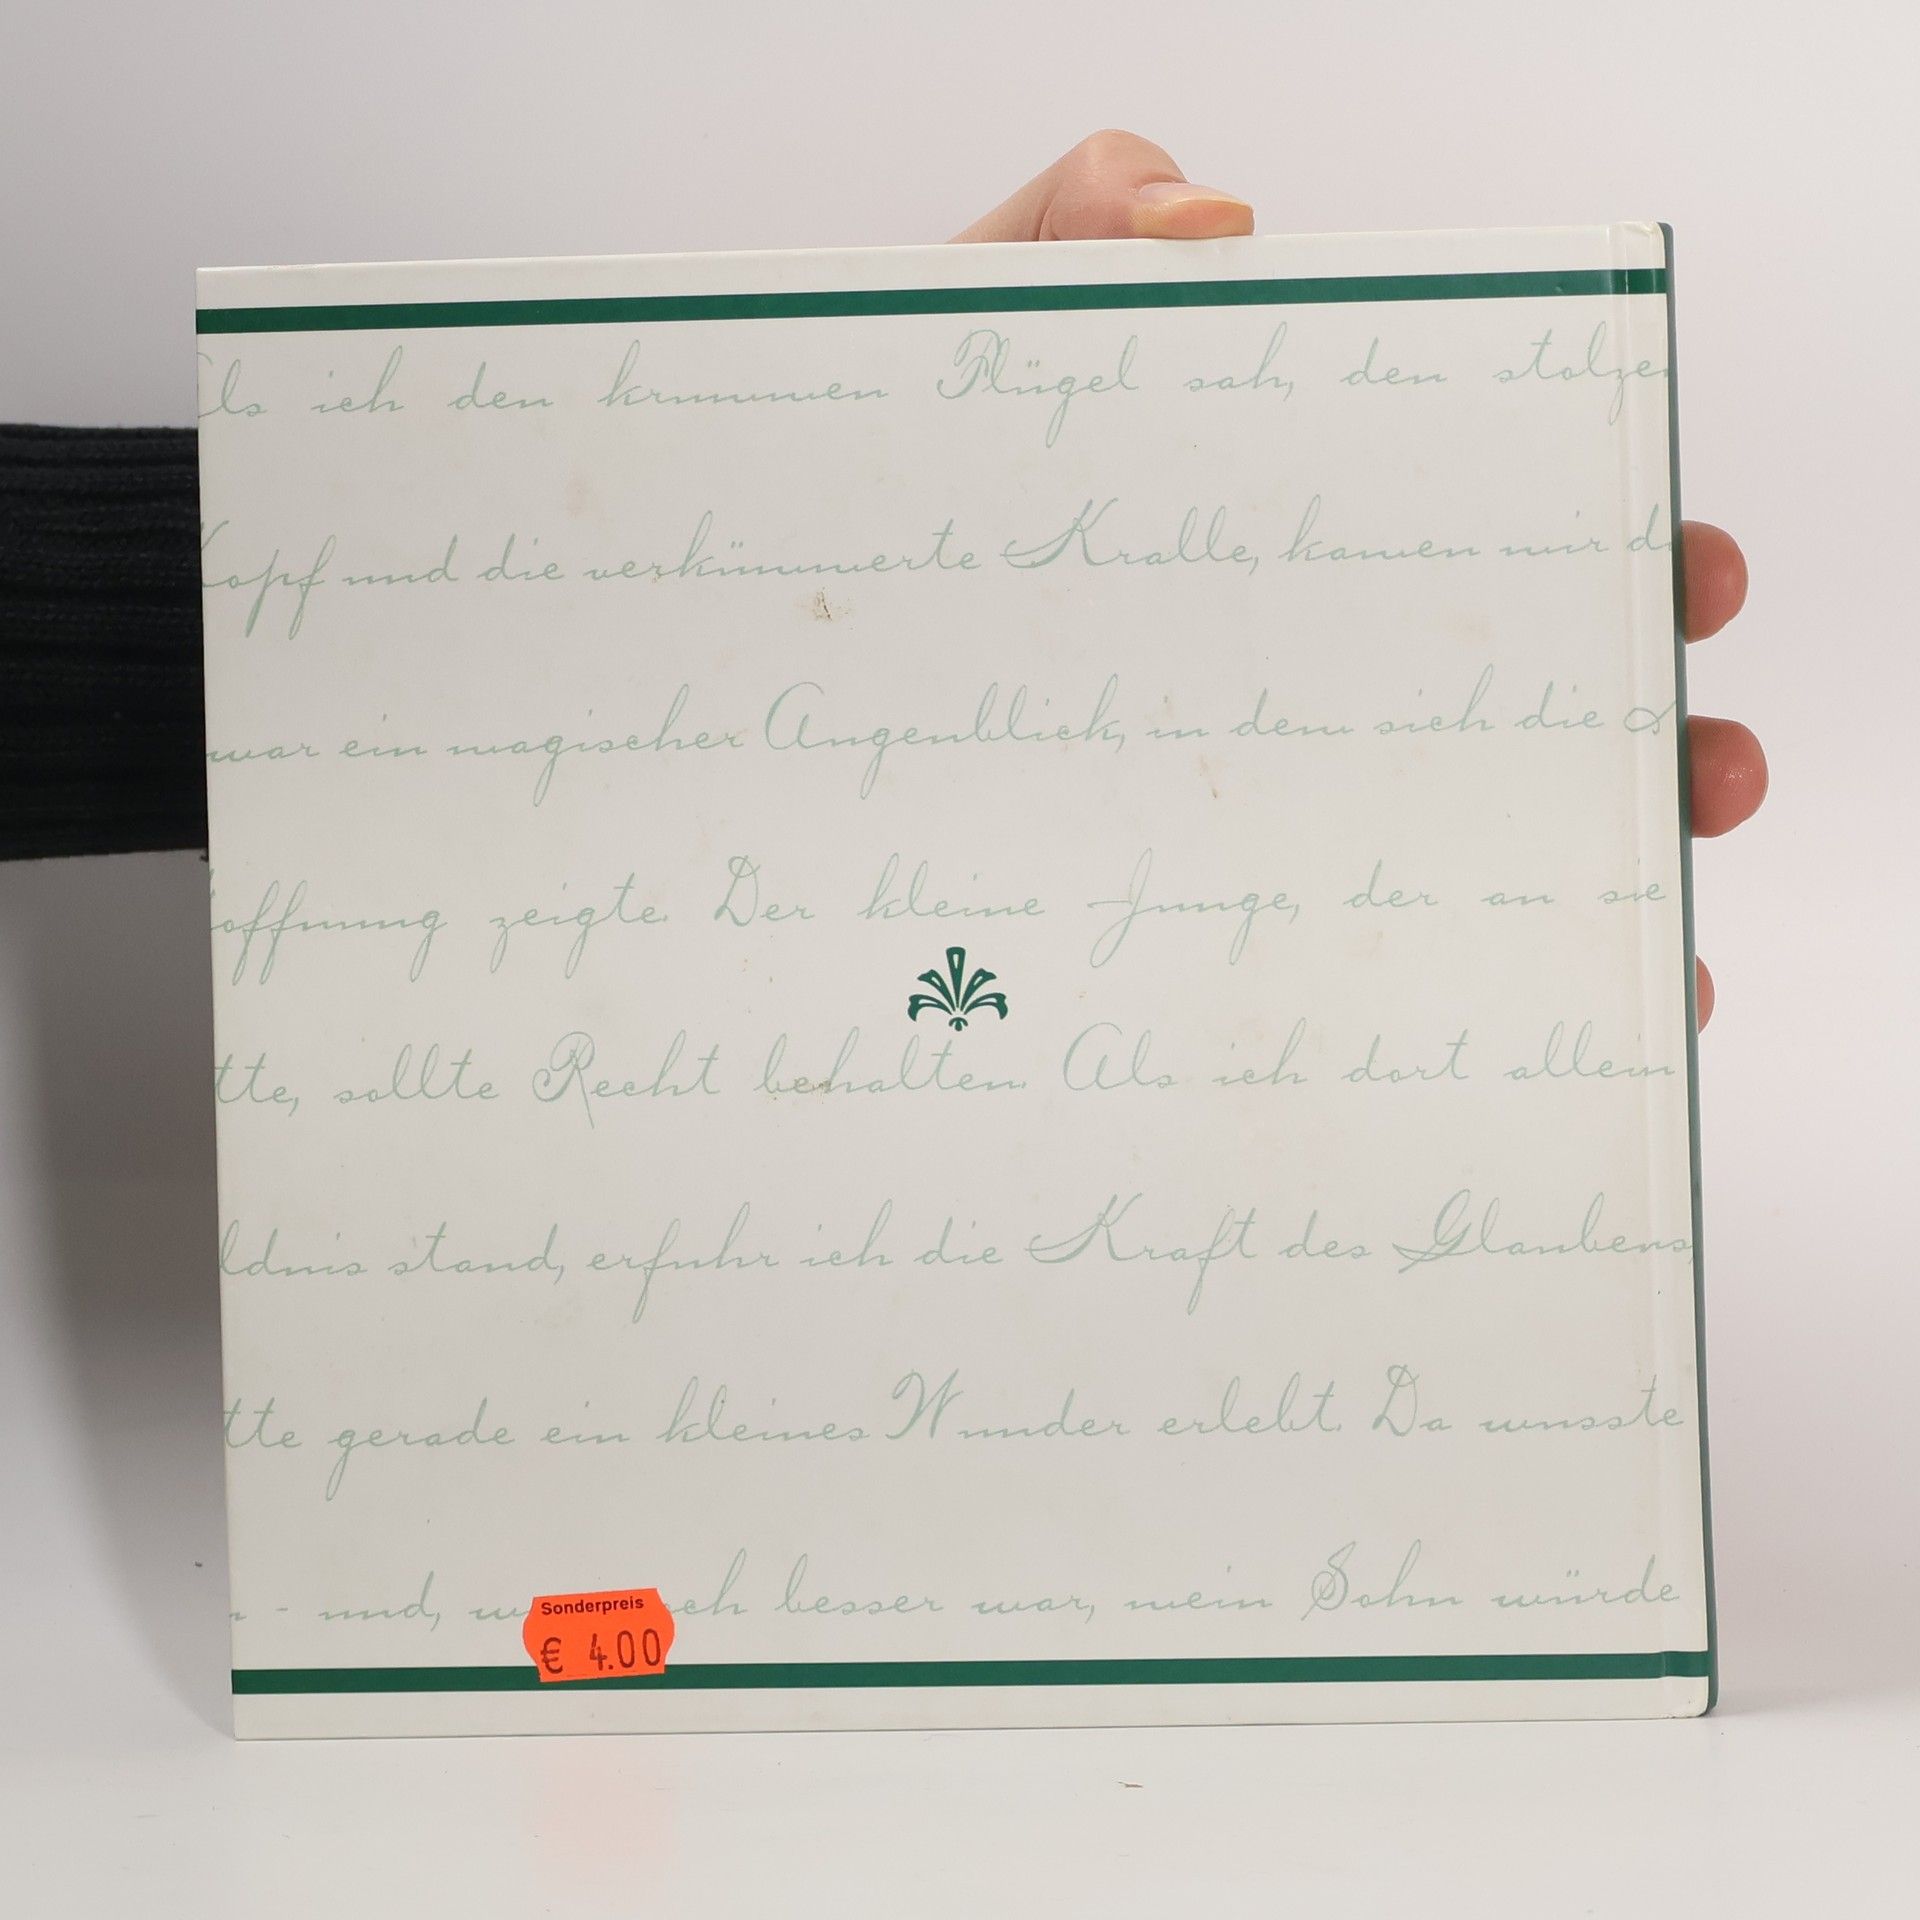 Als ich den krummen Flügel sah, den stolzen
Kopf und die verkümmerte Kralle, kamen mir di
war ein magischer Augenblick, in dem sich die
offnung zeigte. Der kleine Junge, der an sie
tte, sollte Recht behalten. Als ich dort allein
ldnis stand, erfuhr ich die Kraft des Glaubens,
tte gerade ein kleines Wunder erlebt. Da wusste
n - und, w ch besser war, mein Sohn würde
Sonderpreis
€ 4.00